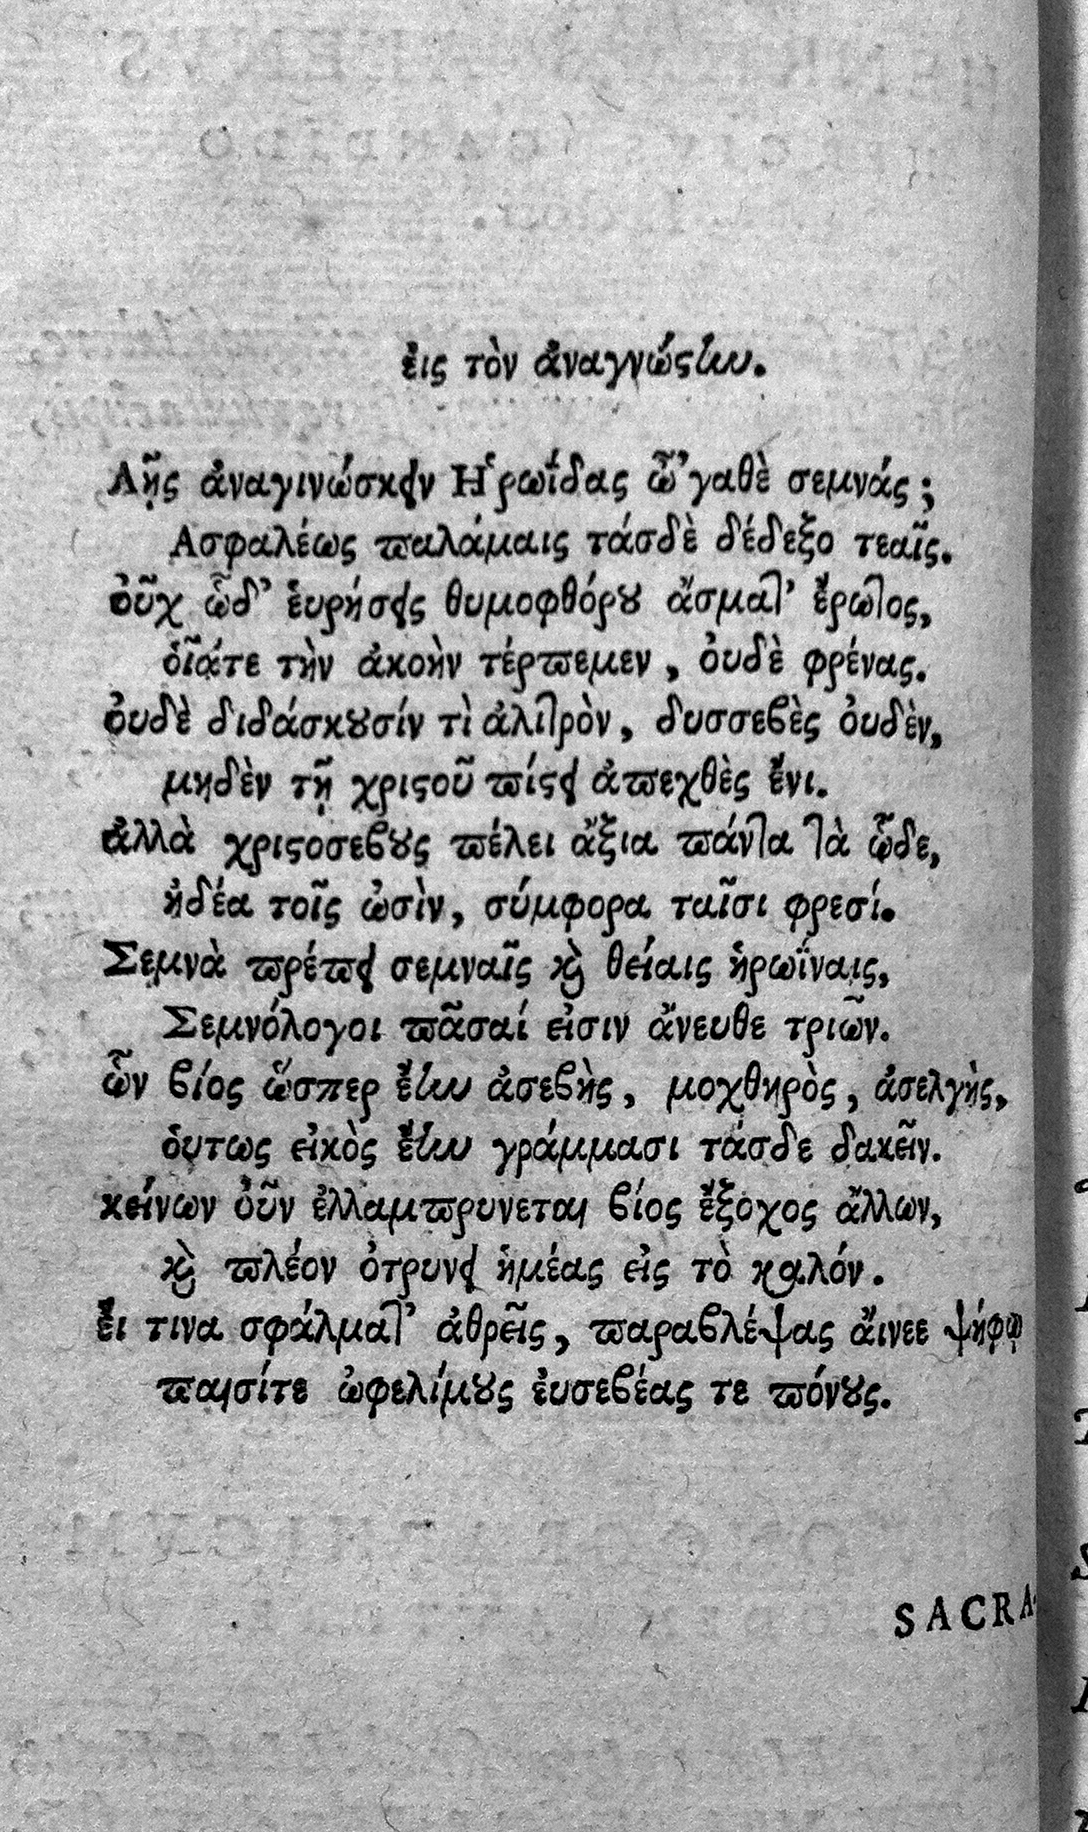 ἐις τὸν ἀναγνώςην.
Λῇς ἀναγινώσκειν Ἡρωΐδας ὦ'γαθὲ σεμνάς;
Ασφαλέως παλάμαις τάσδὲ δέδεξο τεαῖς.
ὀῦχ ὧδ' ἑυρήσεις θυμοφθόρου ἄσματ' ἔρωτος,
διᾶτε τὴν ἀκοὴν τέρπεμεν, ὀυδὲ φρένας.
ὀυδὲ διδάσκουσίν τὶ ἀλιτρὸν, δυσσεβὲς ὀυδὲν,
μηδὲν τῇ χριςοῦ πίςει ἀπεχθὲς ἔνι.
ἀλλὰ χριςοσεβους πέλει ἄξια πάντα τὰ ὧδε,
ἡδέα τοῖς ὠσὶν, σύμφορα ταῖσι φρεσί.
Σεμνὰ πρέπει σεμναῖς καὶ θείαις ἡρωΐναις,
Σεμνόλογοι πᾶσαί εἰσιν ἄνευθε τριῶν.
ὧν βίος ὥσπερ ἔην ἀσεβὴς, μοχθηρὸς, ἀσελγὴς,
ὁυτως εἰκὸς ἔην γράμμασι τάσδε δακεῖν.
κείνων ὀῦν ἐλλαμπρυνεται βίος ἔξοχος ἄλλων,
καὶ πλέον ὀτρυνει ἡμέας εἰς τὸ καλόν.
ἔι τινα σφάλματ' ἀθρεῖς, παραβλέψας ἄινεε ψήφῳ
παισίτε ὠφελίμους ἐυσεβέας τε πόνους.
SACRA-